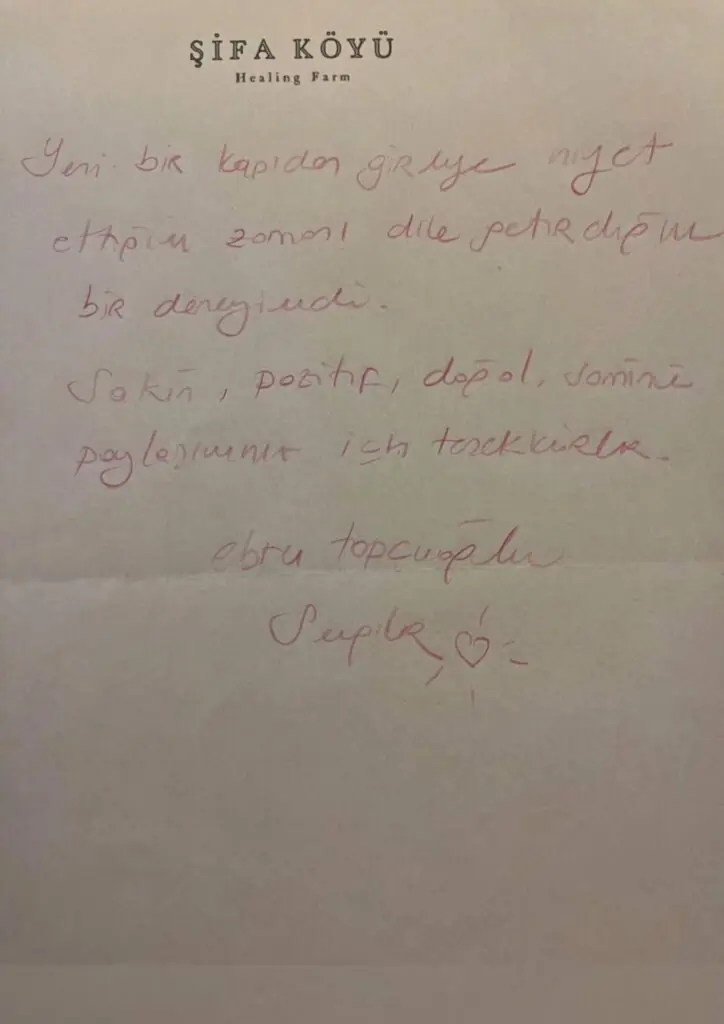 ŞİFA KÖYÜ
Healing Farm
Yeni bir kapıdan girmeye niyet
ettiğim zaman dile getirdiğim
bir deneyimdi.
Sakin, pozitif, doğal, samimi
paylaşımınız için teşekkürler.
ebru topçuoğlu
Sevgiler